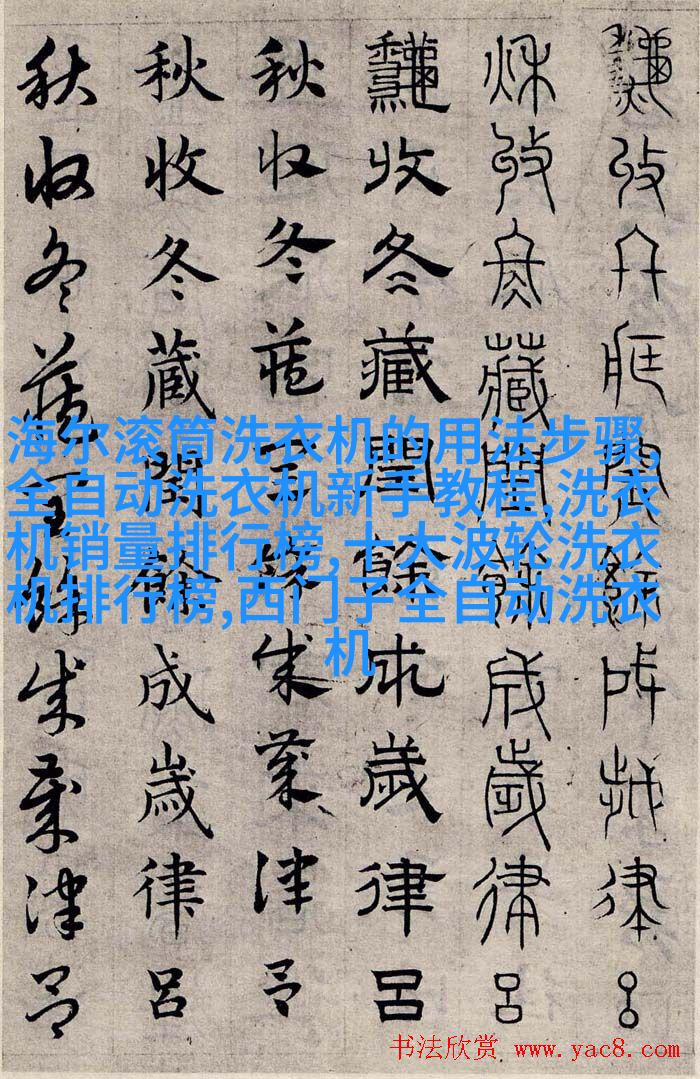 收冬藏閏餘成歲律呂
秌收冬藏閏餘成歲律呂
收冬藏閏餘成歲律呂
秋收冬藏閏餘成歲律呂
秋收冬藏閏餘成歲律呂
秋收冬藏閏餘成歲律呂
海尔滚筒洗衣机的用法步骤,
全自动洗衣机新手教程,洗衣
机销量排行榜,十大波轮洗衣
机排行榜,西门子全自动洗衣
机
书法欣赏 www.yac8.com